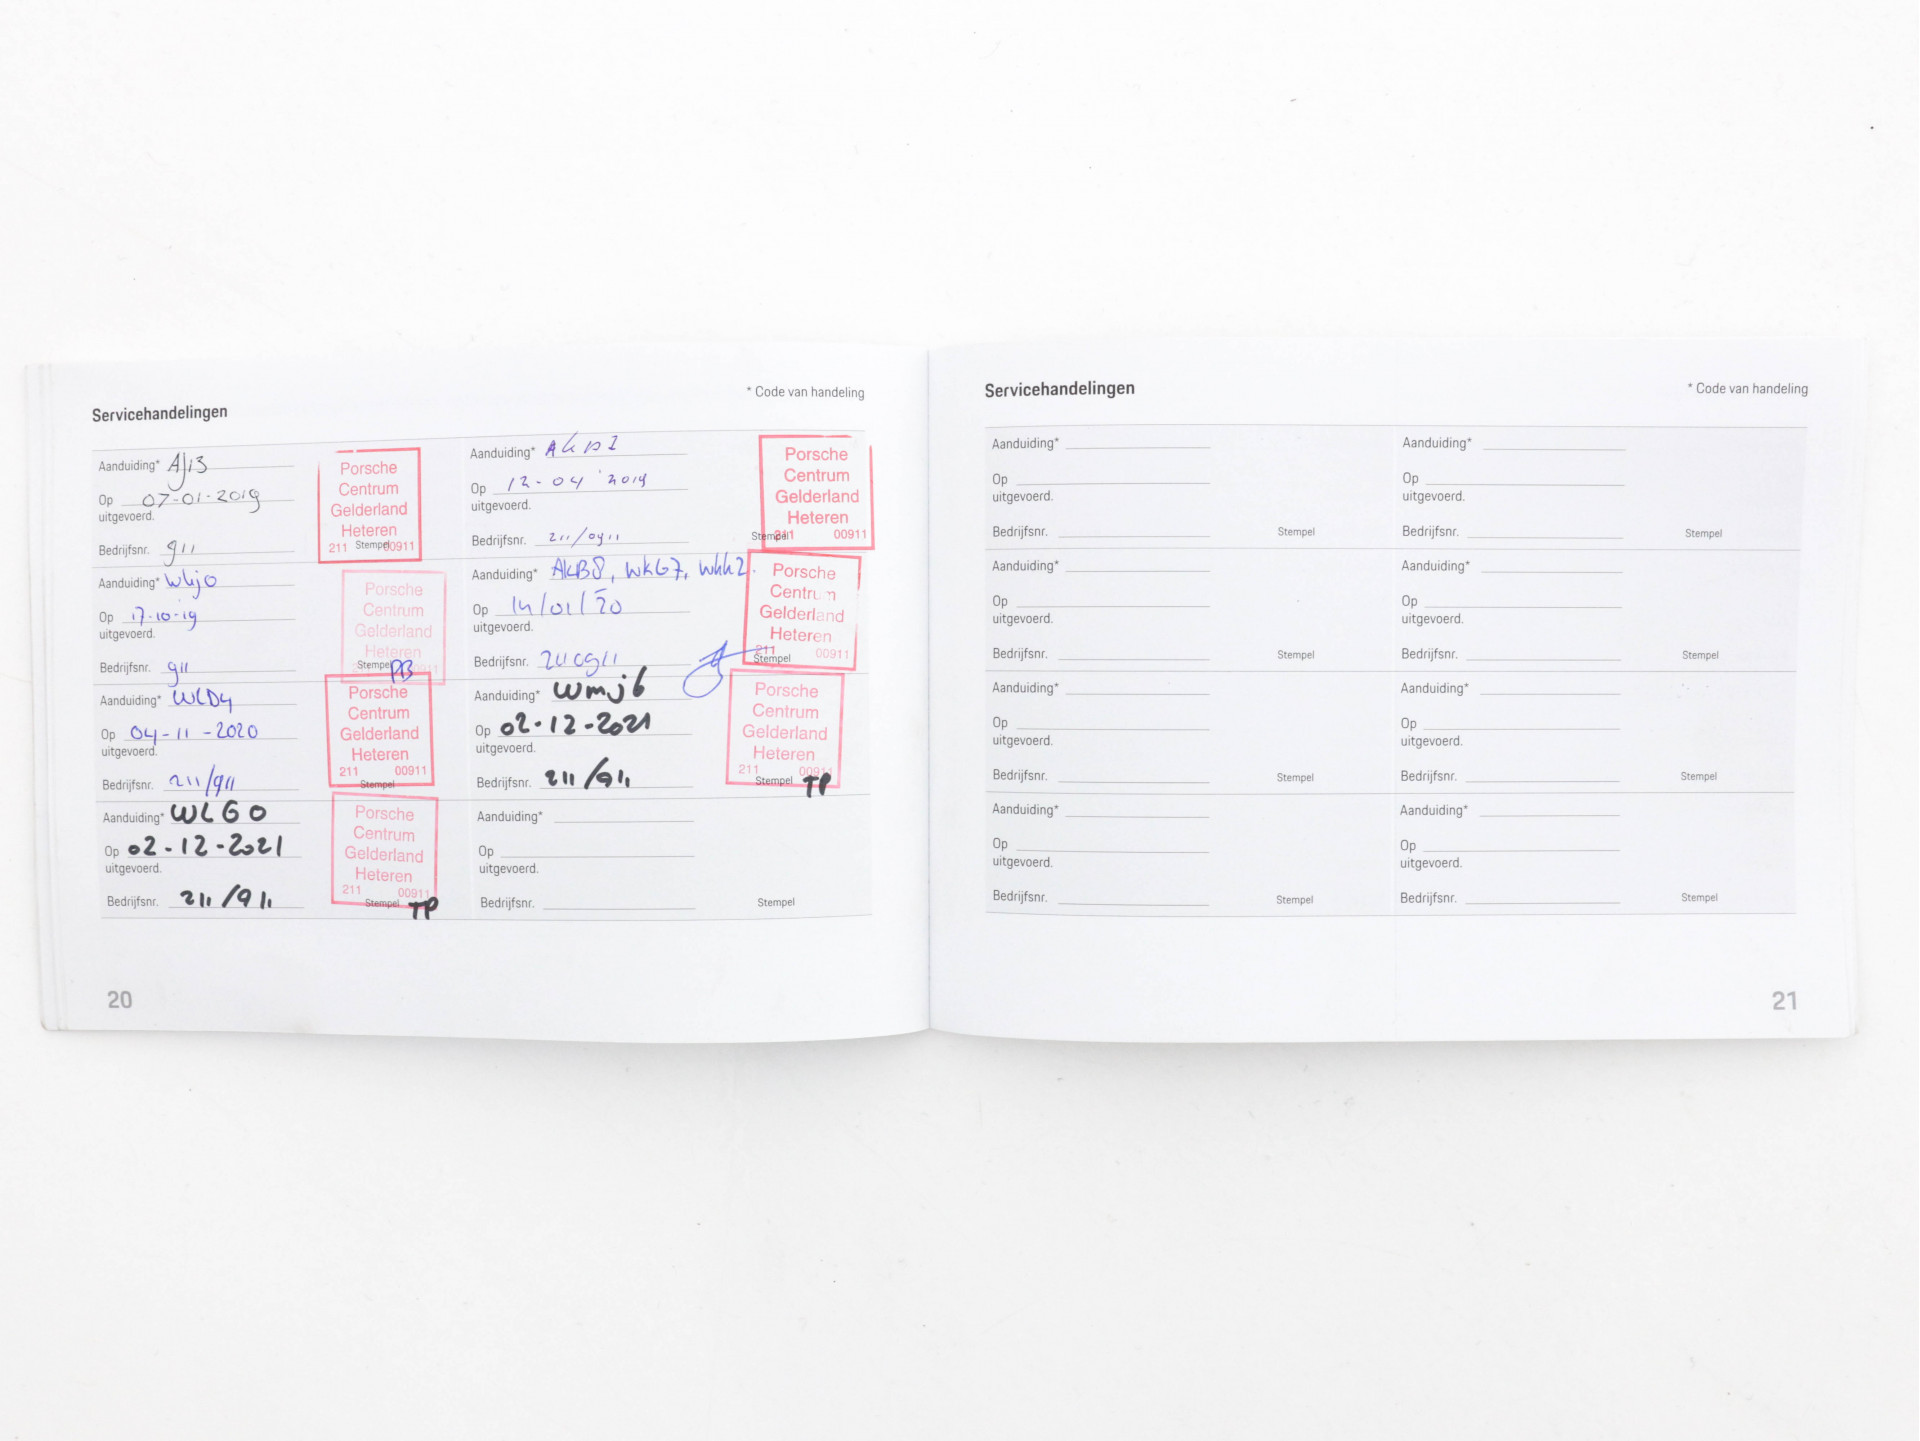 Servicehandelingen
* Code van handeling
Aanduiding* AJ13
Op 07-01-2019
uitgevoerd.
Bedrijfsnr. 911
Stempel
Porsche
Centrum
Gelderland
Heteren
211 00911
Aanduiding*
Op 12-04 2019
uitgevoerd.
Bedrijfsnr. 211/0911
Stempel
Porsche
Centrum
Gelderland
Heteren
211 00911
Aanduiding* Wkj0
Op 17-10-19
uitgevoerd.
Bedrijfsnr. 911
Stempel PB
Porsche
Centrum
Gelderland
Heteren
Aanduiding* AKB8, WKG7, Wkh2.
Op 14/01/20
uitgevoerd.
Bedrijfsnr.
Stempel
Porsche
Centrum
Gelderland
Heteren
211 00911
Aanduiding* WLD4
Op 04-11-2020
uitgevoerd.
Bedrijfsnr. 211/911
Stempel
Porsche
Centrum
Gelderland
Heteren
211 00911
Aanduiding* Wmj6
Op 02-12-2021
uitgevoerd.
Bedrijfsnr. 211/911
Stempel TP
Porsche
Centrum
Gelderland
Heteren
211 00911
Aanduiding* WLG0
Op 02-12-2021
uitgevoerd.
Bedrijfsnr. 211/911
Stempel TP
Porsche
Centrum
Gelderland
Heteren
211 00911
Aanduiding*
Op
uitgevoerd.
Bedrijfsnr.
Stempel
20
Servicehandelingen
* Code van handeling
Aanduiding*
Op
uitgevoerd.
Bedrijfsnr.
Stempel
Aanduiding*
Op
uitgevoerd.
Bedrijfsnr.
Stempel
Aanduiding*
Op
uitgevoerd.
Bedrijfsnr.
Stempel
Aanduiding*
Op
uitgevoerd.
Bedrijfsnr.
Stempel
Aanduiding*
Op
uitgevoerd.
Bedrijfsnr.
Stempel
Aanduiding*
Op
uitgevoerd.
Bedrijfsnr.
Stempel
Aanduiding*
Op
uitgevoerd.
Bedrijfsnr.
Stempel
Aanduiding*
Op
uitgevoerd.
Bedrijfsnr.
Stempel
21